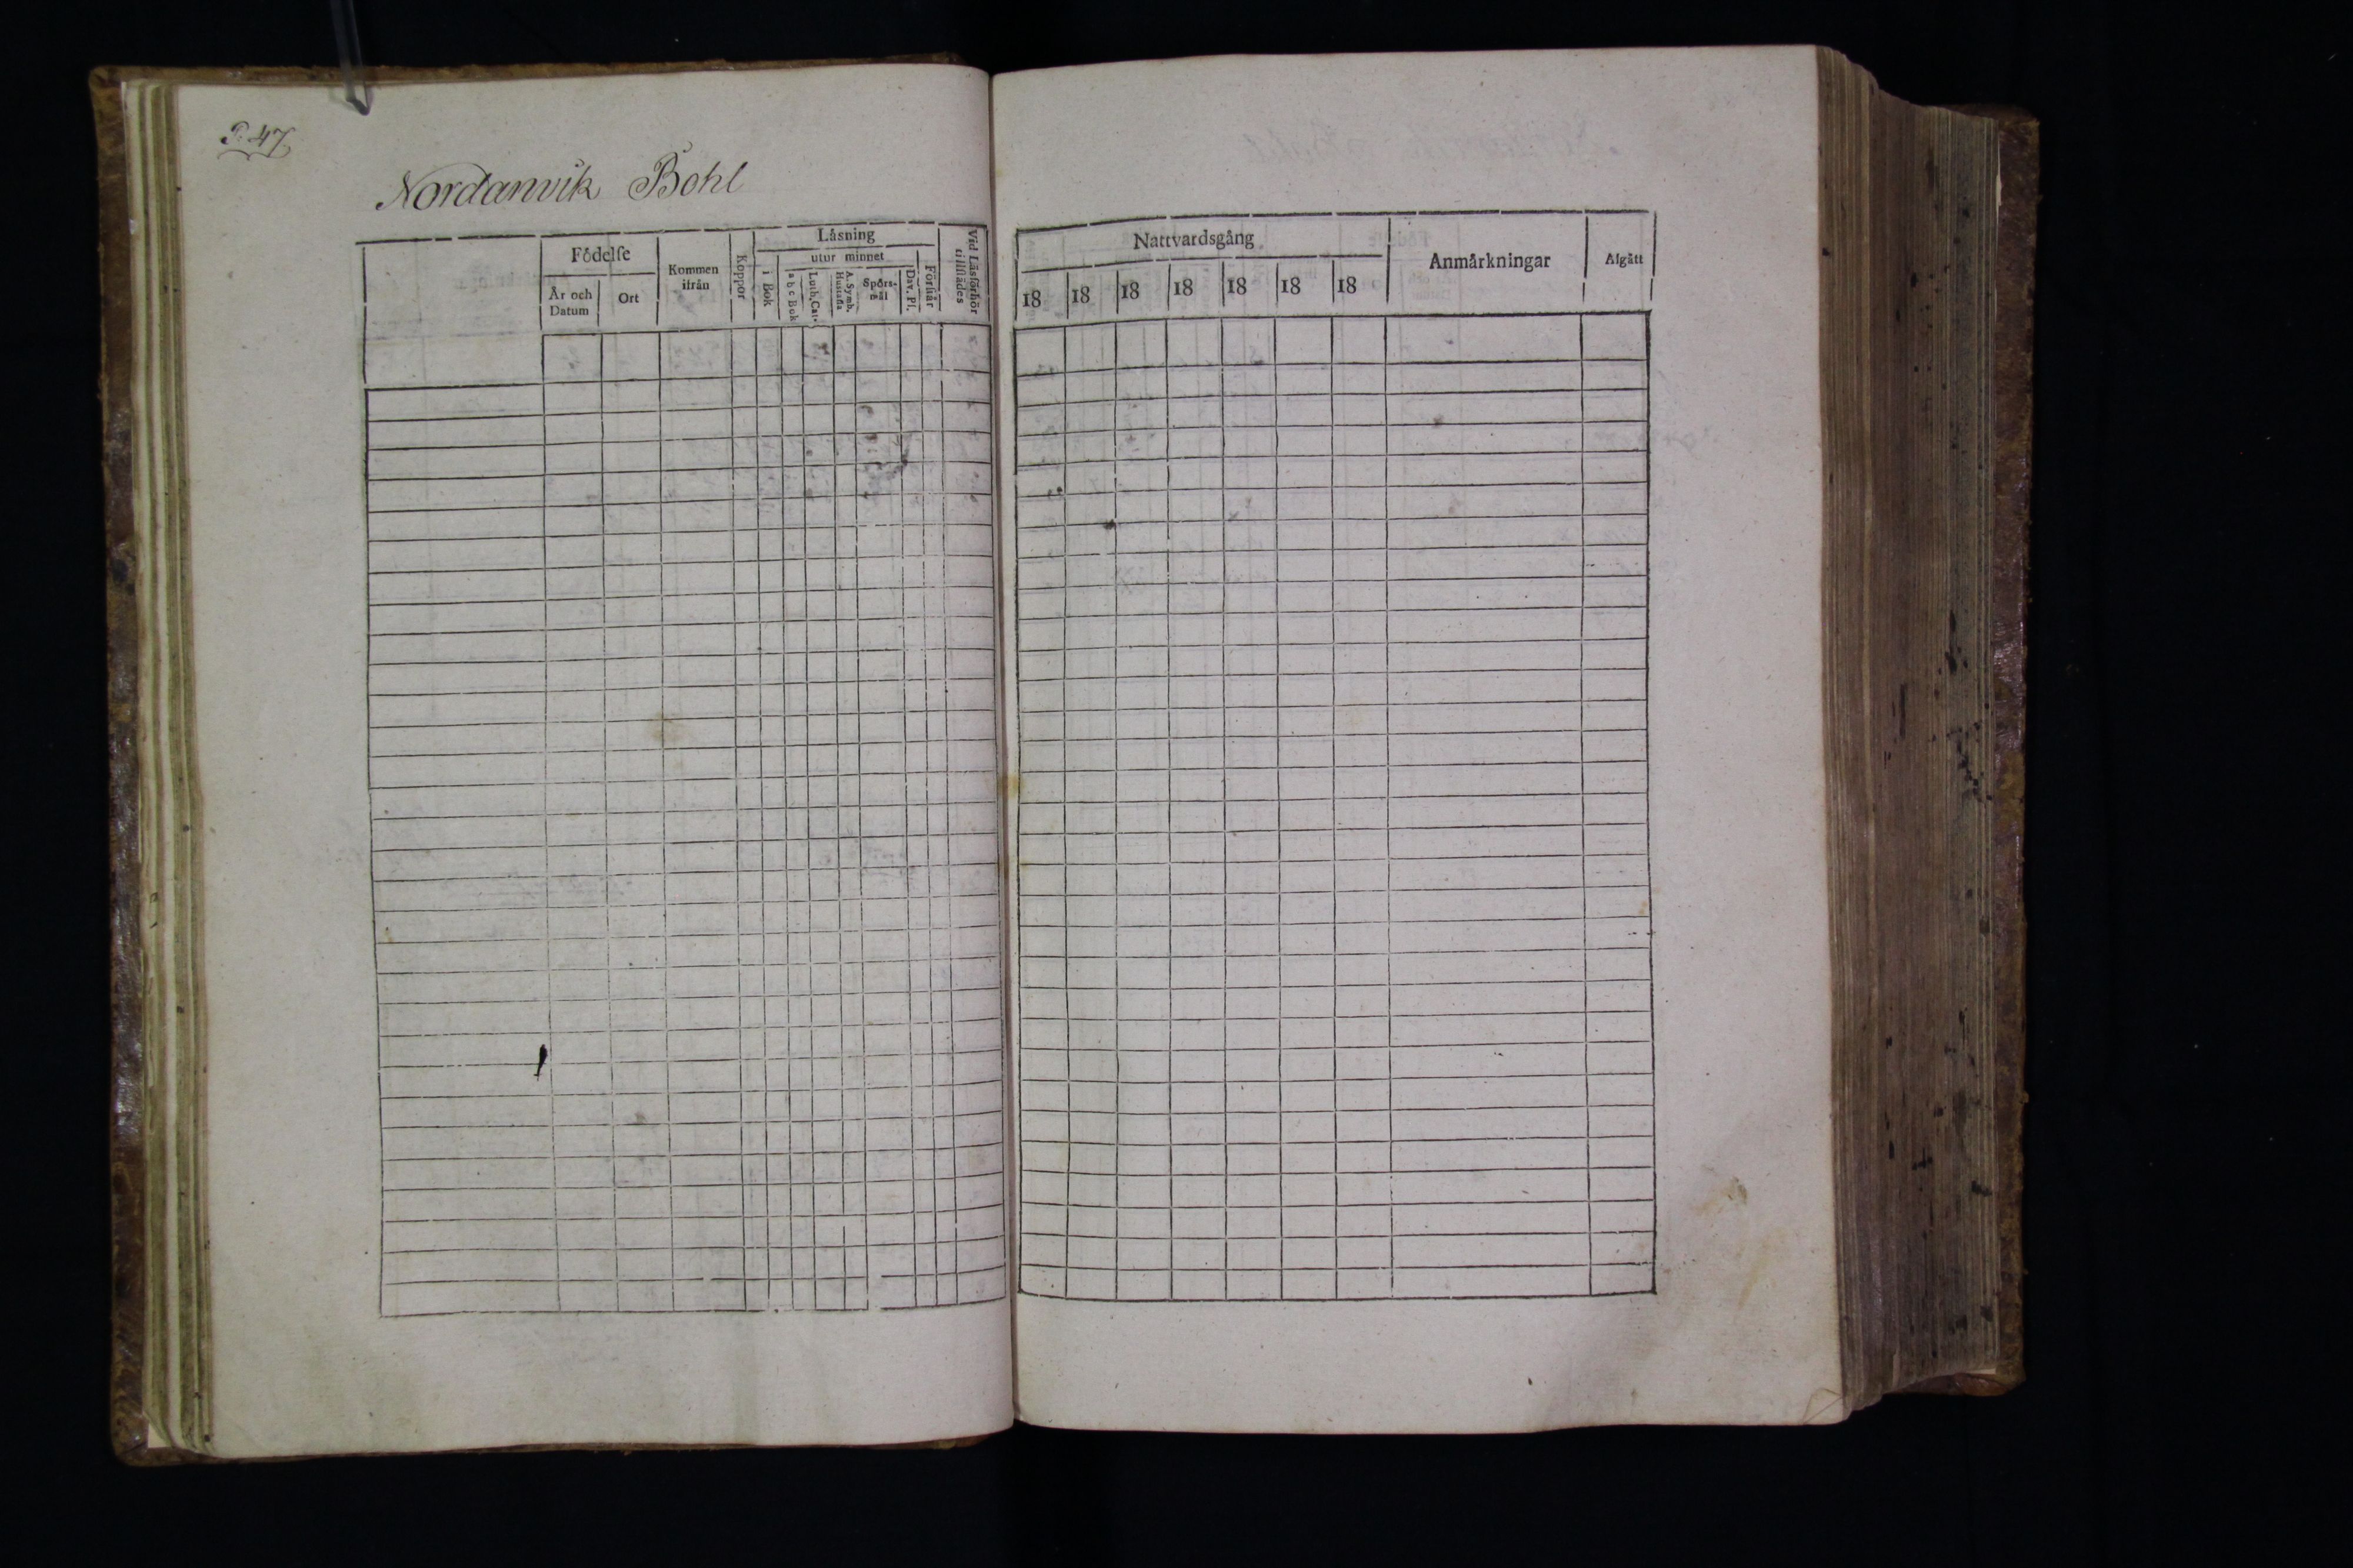 P. 47
Nordanvik Bohl
Födelse
År och Datum
Ort
Kommen ifrån
Koppor
Läsning
i Bok
utur minnet
a b c Bok
Luth. Cat.
A. Symb. Hustafla
Spörs-
mål
Dav. Pl.
Förstår
Vid Läsförhör
tillstädes
Nattvardsgång
18 18 18 18 18 18 18
Anmärkningar
Afgått